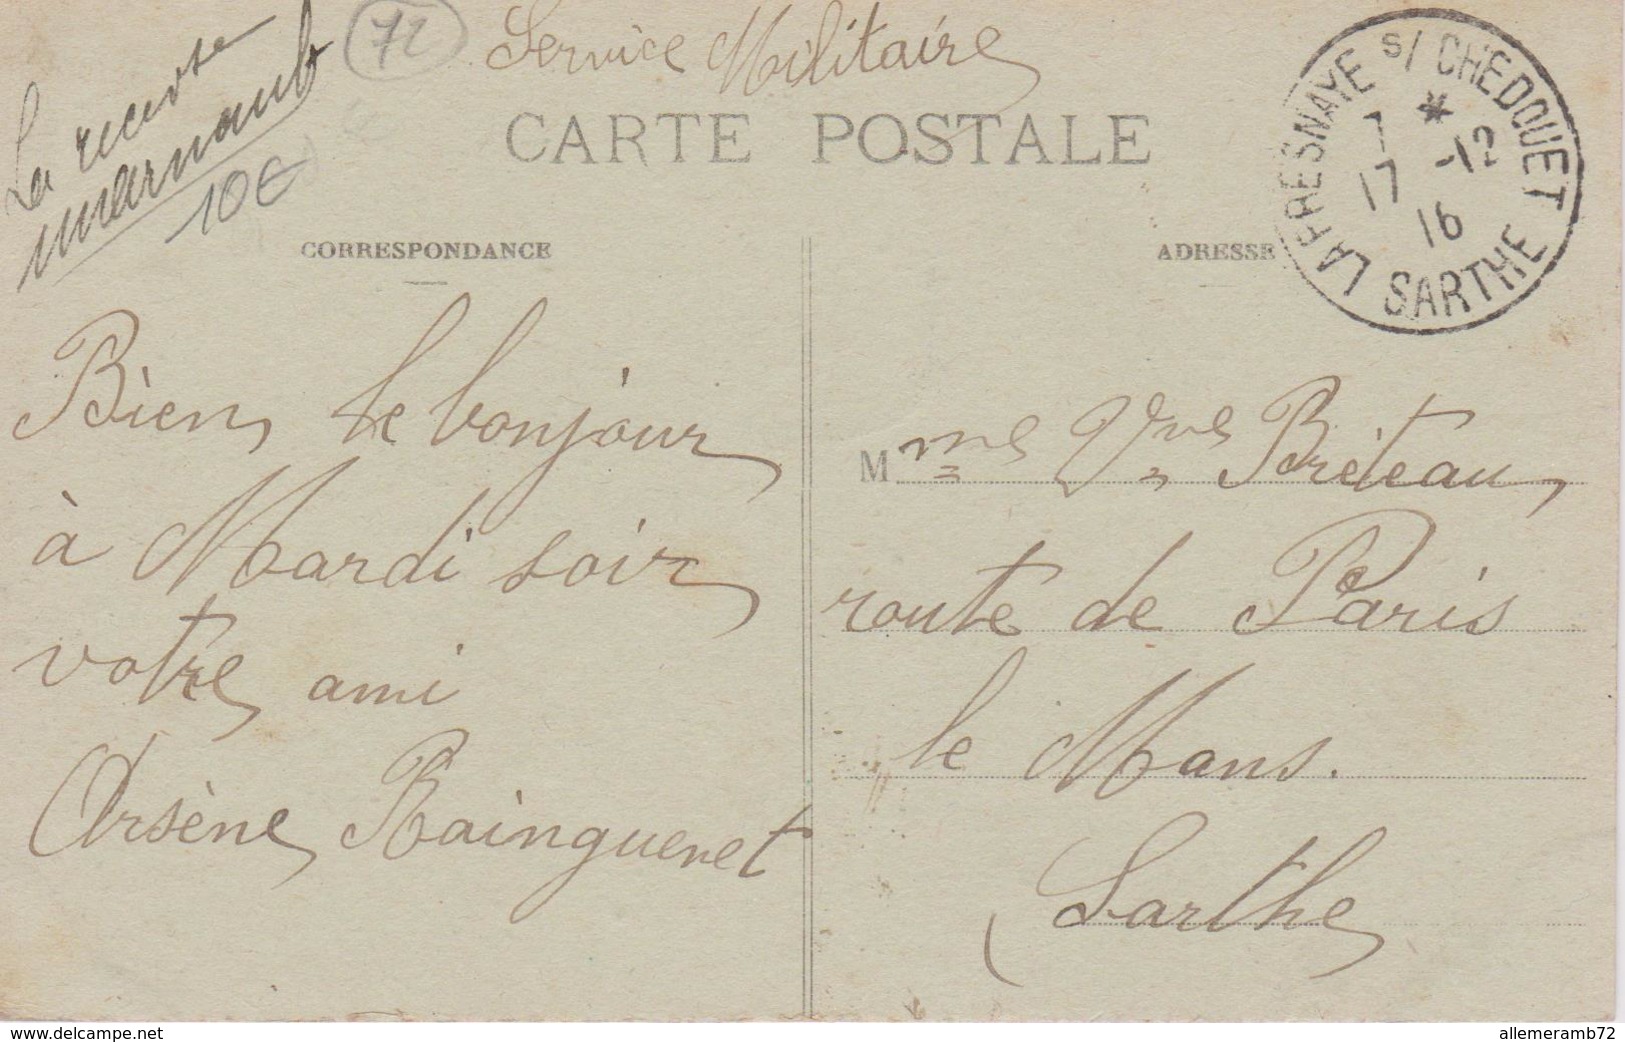 Service Militaire
72
La receveuse
10€
CARTE POSTALE
LA FRESNAYE S/ CHEDOUET
*
7 -12
17
16
SARTHE
CORRESPONDANCE
ADRESSE
Bien, le bonjour,
à Mardi soir,
votre ami
Arsène Rainguenet
Mme Vve Breteau,
route de Paris
le Mans.
(Sarthe)
www.delcampe.net
allemeramb72